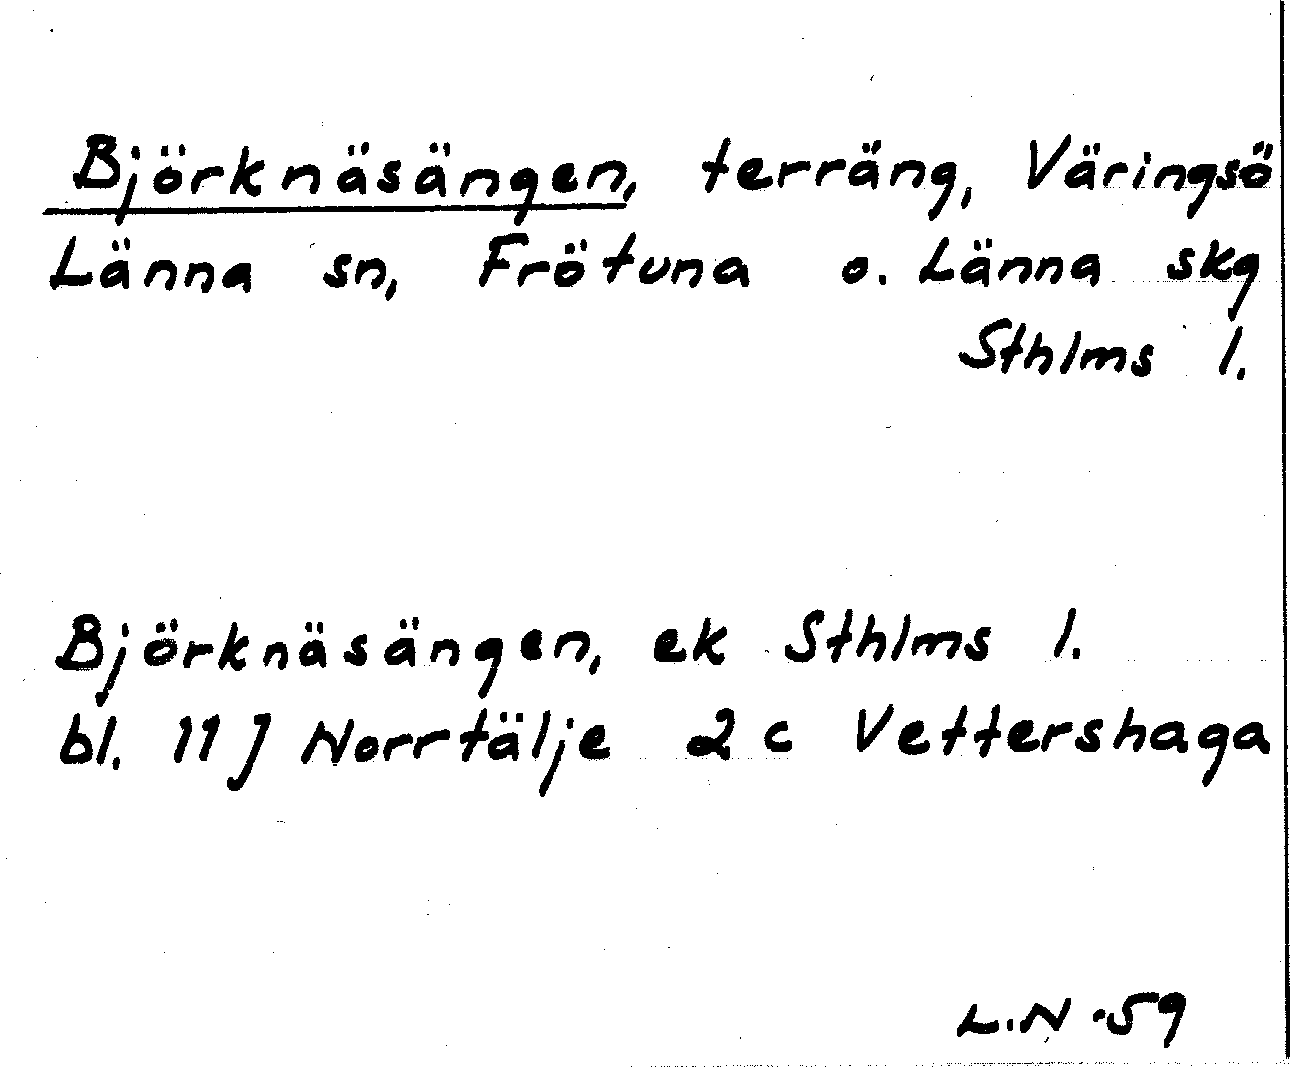 Björknäsängen, terräng, Väringsö
Länna sn, Frötuna o. Länna skg
Sthlms l.
Björknäsängen, ek Sthlms l.
bl. 11 J Norrtälje 2 c Vettershaga
L.N -59